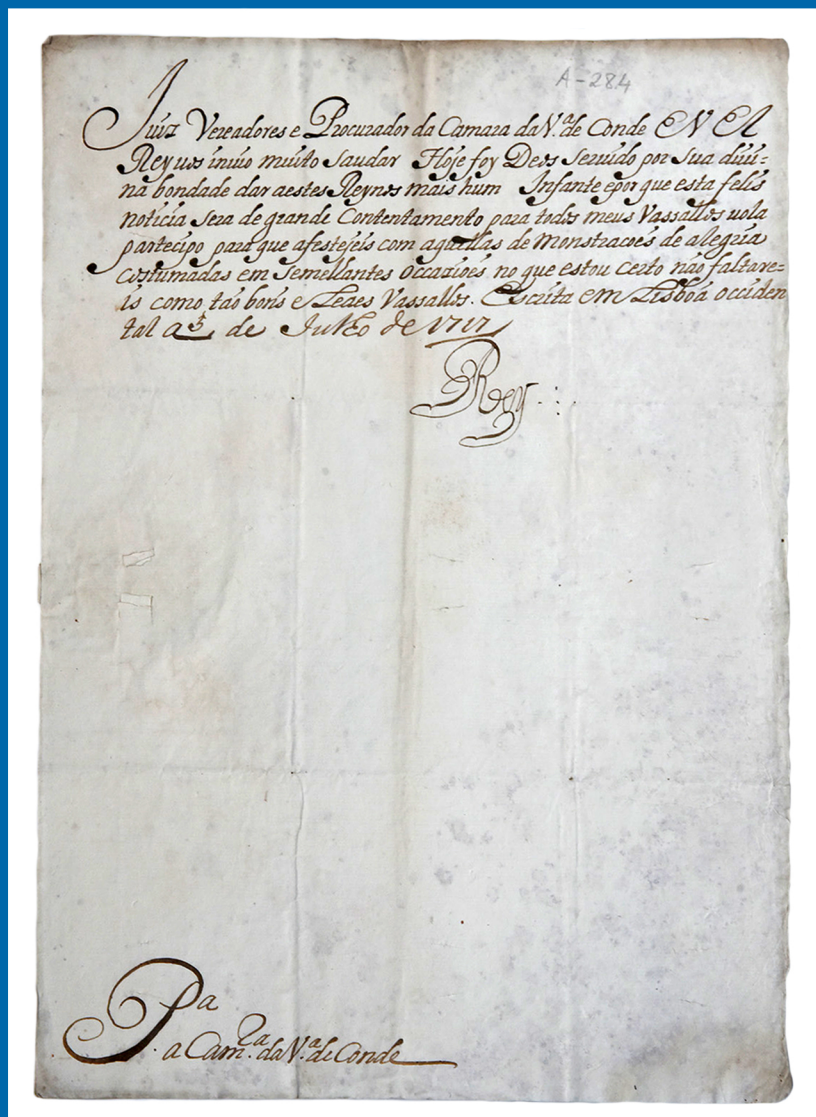 A-284
Juiz Vereadores e Procurador da Camara da V.ª de Conde EV El
Rey vos inuio muito saudar Hoje foy Deos seruido por sua diui=
na bondade dar aestes Reynos mais hum Infante epor que esta felis
noticia sera de grande Contentamento para todos meus Vassallos uola
partecipo para que afestejeis com aquellas de monstracoes de alegria
costumadas em semelhantes occazioes no que estou certo não faltare=
is como tão bons e Leaes Vassallos. Escrita em Lisboa occiden
tal a 5 de Julho de 1717
Rey
Pa
a Cam.ra da V.ª de Conde